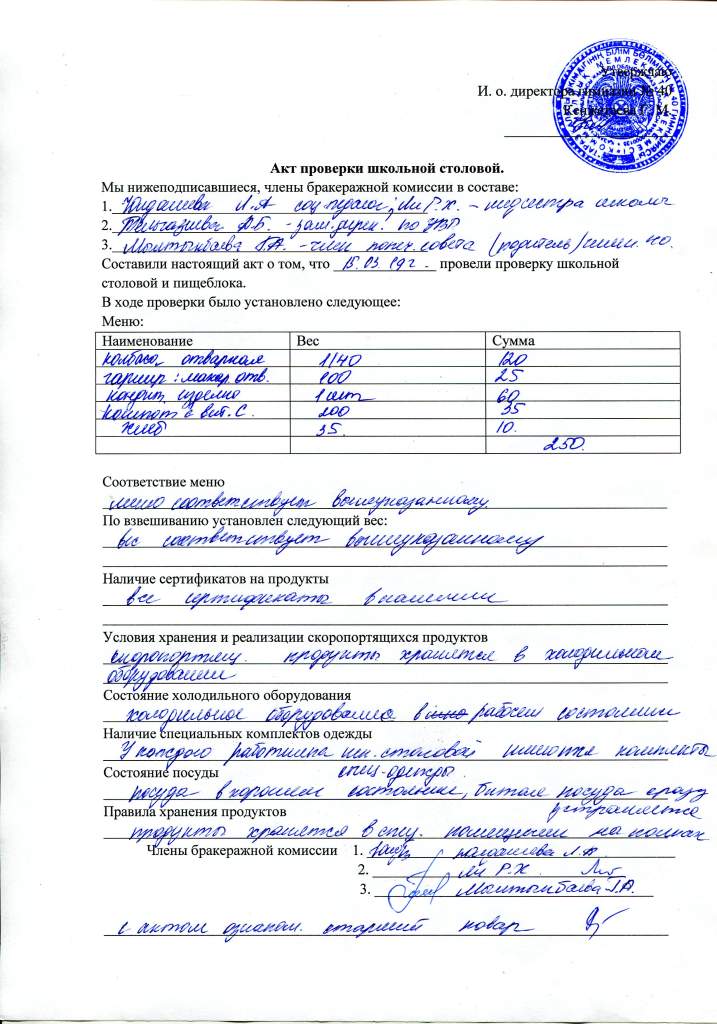 Утверждаю
И. о. директора гимназии № 40
Акт проверки школьной столовой.
Мы нижеподписавшиеся, члены бракеражной комиссии в составе:
1. Юлдашева Л.А соц педагог, Ли Р.Х. – медсестра школы
2. Д.Б. - зам. дирек. по
3. Молтынбаева Г.А. - член попеч. совета (родитель)
Составили настоящий акт о том, что 15.03.19г. провели проверку школьной
столовой и пищеблока.
В ходе проверки было установлено следующее:
Меню:
Наименование Вес Сумма
колбаса отварная 1/40 120
гарнир: макар. отв. 100 25
кондит. изделие 1 шт 60
компот с вит. С. 200 35
хлеб 35. 10.
250.
Соответствие меню
меню соответствует вышеуказанному.
По взвешиванию установлен следующий вес:
вес соответствует вышеуказанному
Наличие сертификатов на продукты
все сертификаты в наличии
Условия хранения и реализации скоропортящихся продуктов
скоропортящ. продукты хранятся в холодильном
оборудовании
Состояние холодильного оборудования
холодильное оборудование в рабочем состоянии
Наличие специальных комплектов одежды
У каждого работника шк. столовой имеются комплекты
Состояние посуды спец-одежды.
посуда в хорошем состоянии, битая посуда сразу
устраняется
Правила хранения продуктов
продукты хранятся в спец. помещении на полках
Члены бракеражной комиссии 1. Юлдашева Л.А.
2. Ли Р.Х.
3. Молтынбаева Г.А.
с актом ознаком. старший повар